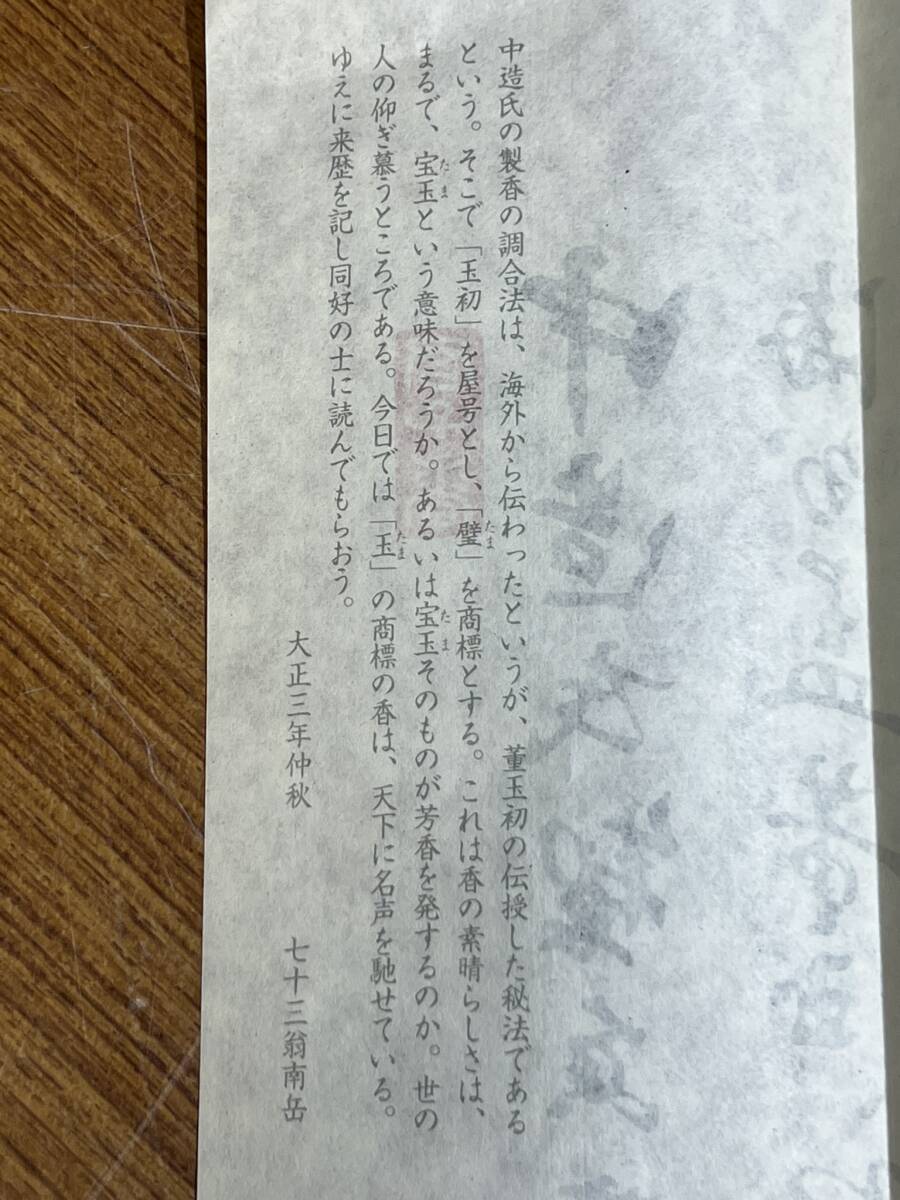 中造氏の製香の調合法は、海外から伝わったというが、董玉初の伝授した秘法である
という。そこで「玉初」を屋号とし、「璧」を商標とする。これは香の素晴らしさは、
たま
まるで、宝玉という意味だろうか。あるいは宝玉そのものが芳香を発するのか。世の
たま
たま
人の仰ぎ慕うところである。今日では「玉」の商標の香は、天下に名声を馳せている。
たま
ゆえに来歴を記し同好の士に読んでもらおう。
大正三年仲秋 七十三翁南岳